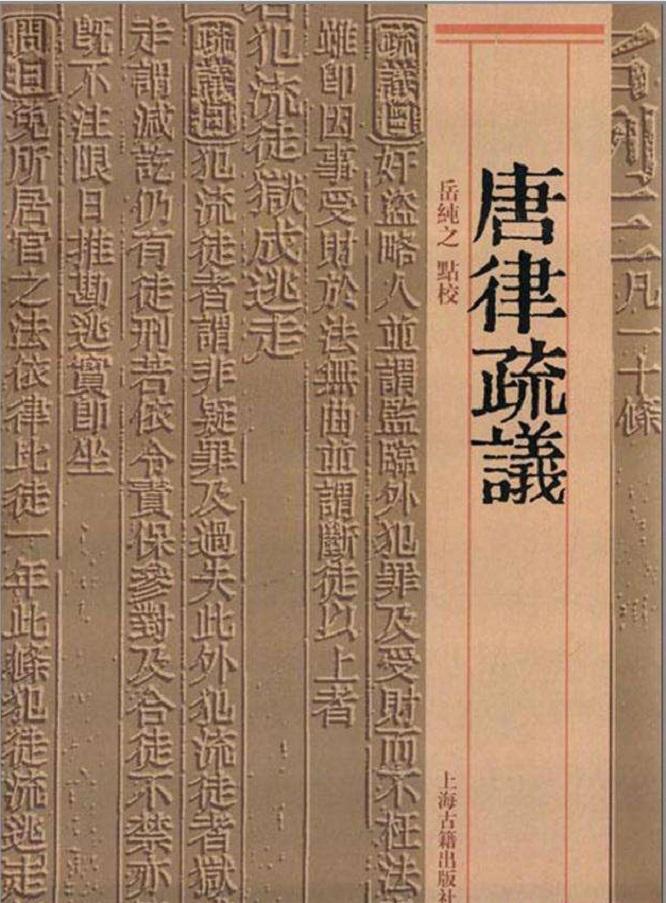 名例三 凡一十條
唐律疏議
岳純之 點校
上海古籍出版社
疏議曰奸盜略人並謂監臨外犯罪及受財而不枉法
雖即因事受財於法無曲並謂斷徒以上者
若犯流徒獄成逃走
疏議曰犯流徒者謂非疑罪及過失此外犯流徒者獄
走謂減訖仍有徒刑若依令責保參對及合徒不禁亦
既不注限日推勘逃實即坐
問曰免所居官之法依律比徒一年此條犯徒流逃走